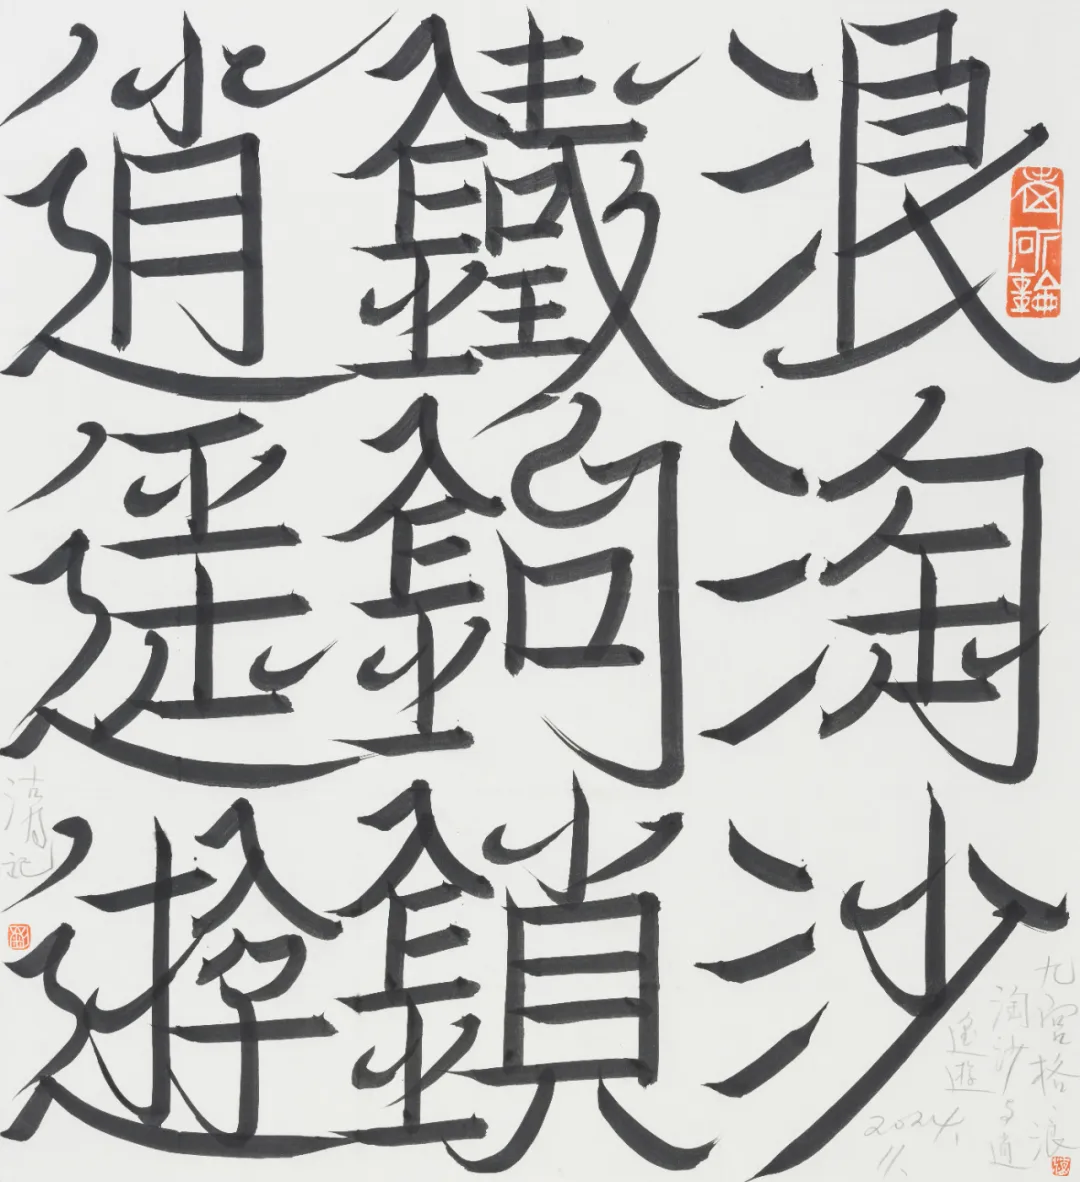 浪淘沙
鐵鉤鎖
逍遙遊
九宫格·浪
淘沙与逍
遙遊
2024.
11.